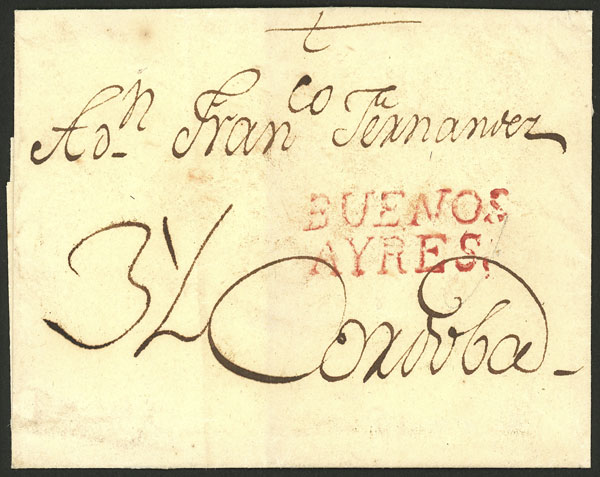 A Dn Franco Fernandez
BUENOS
AYRES.
3½ Cordoba